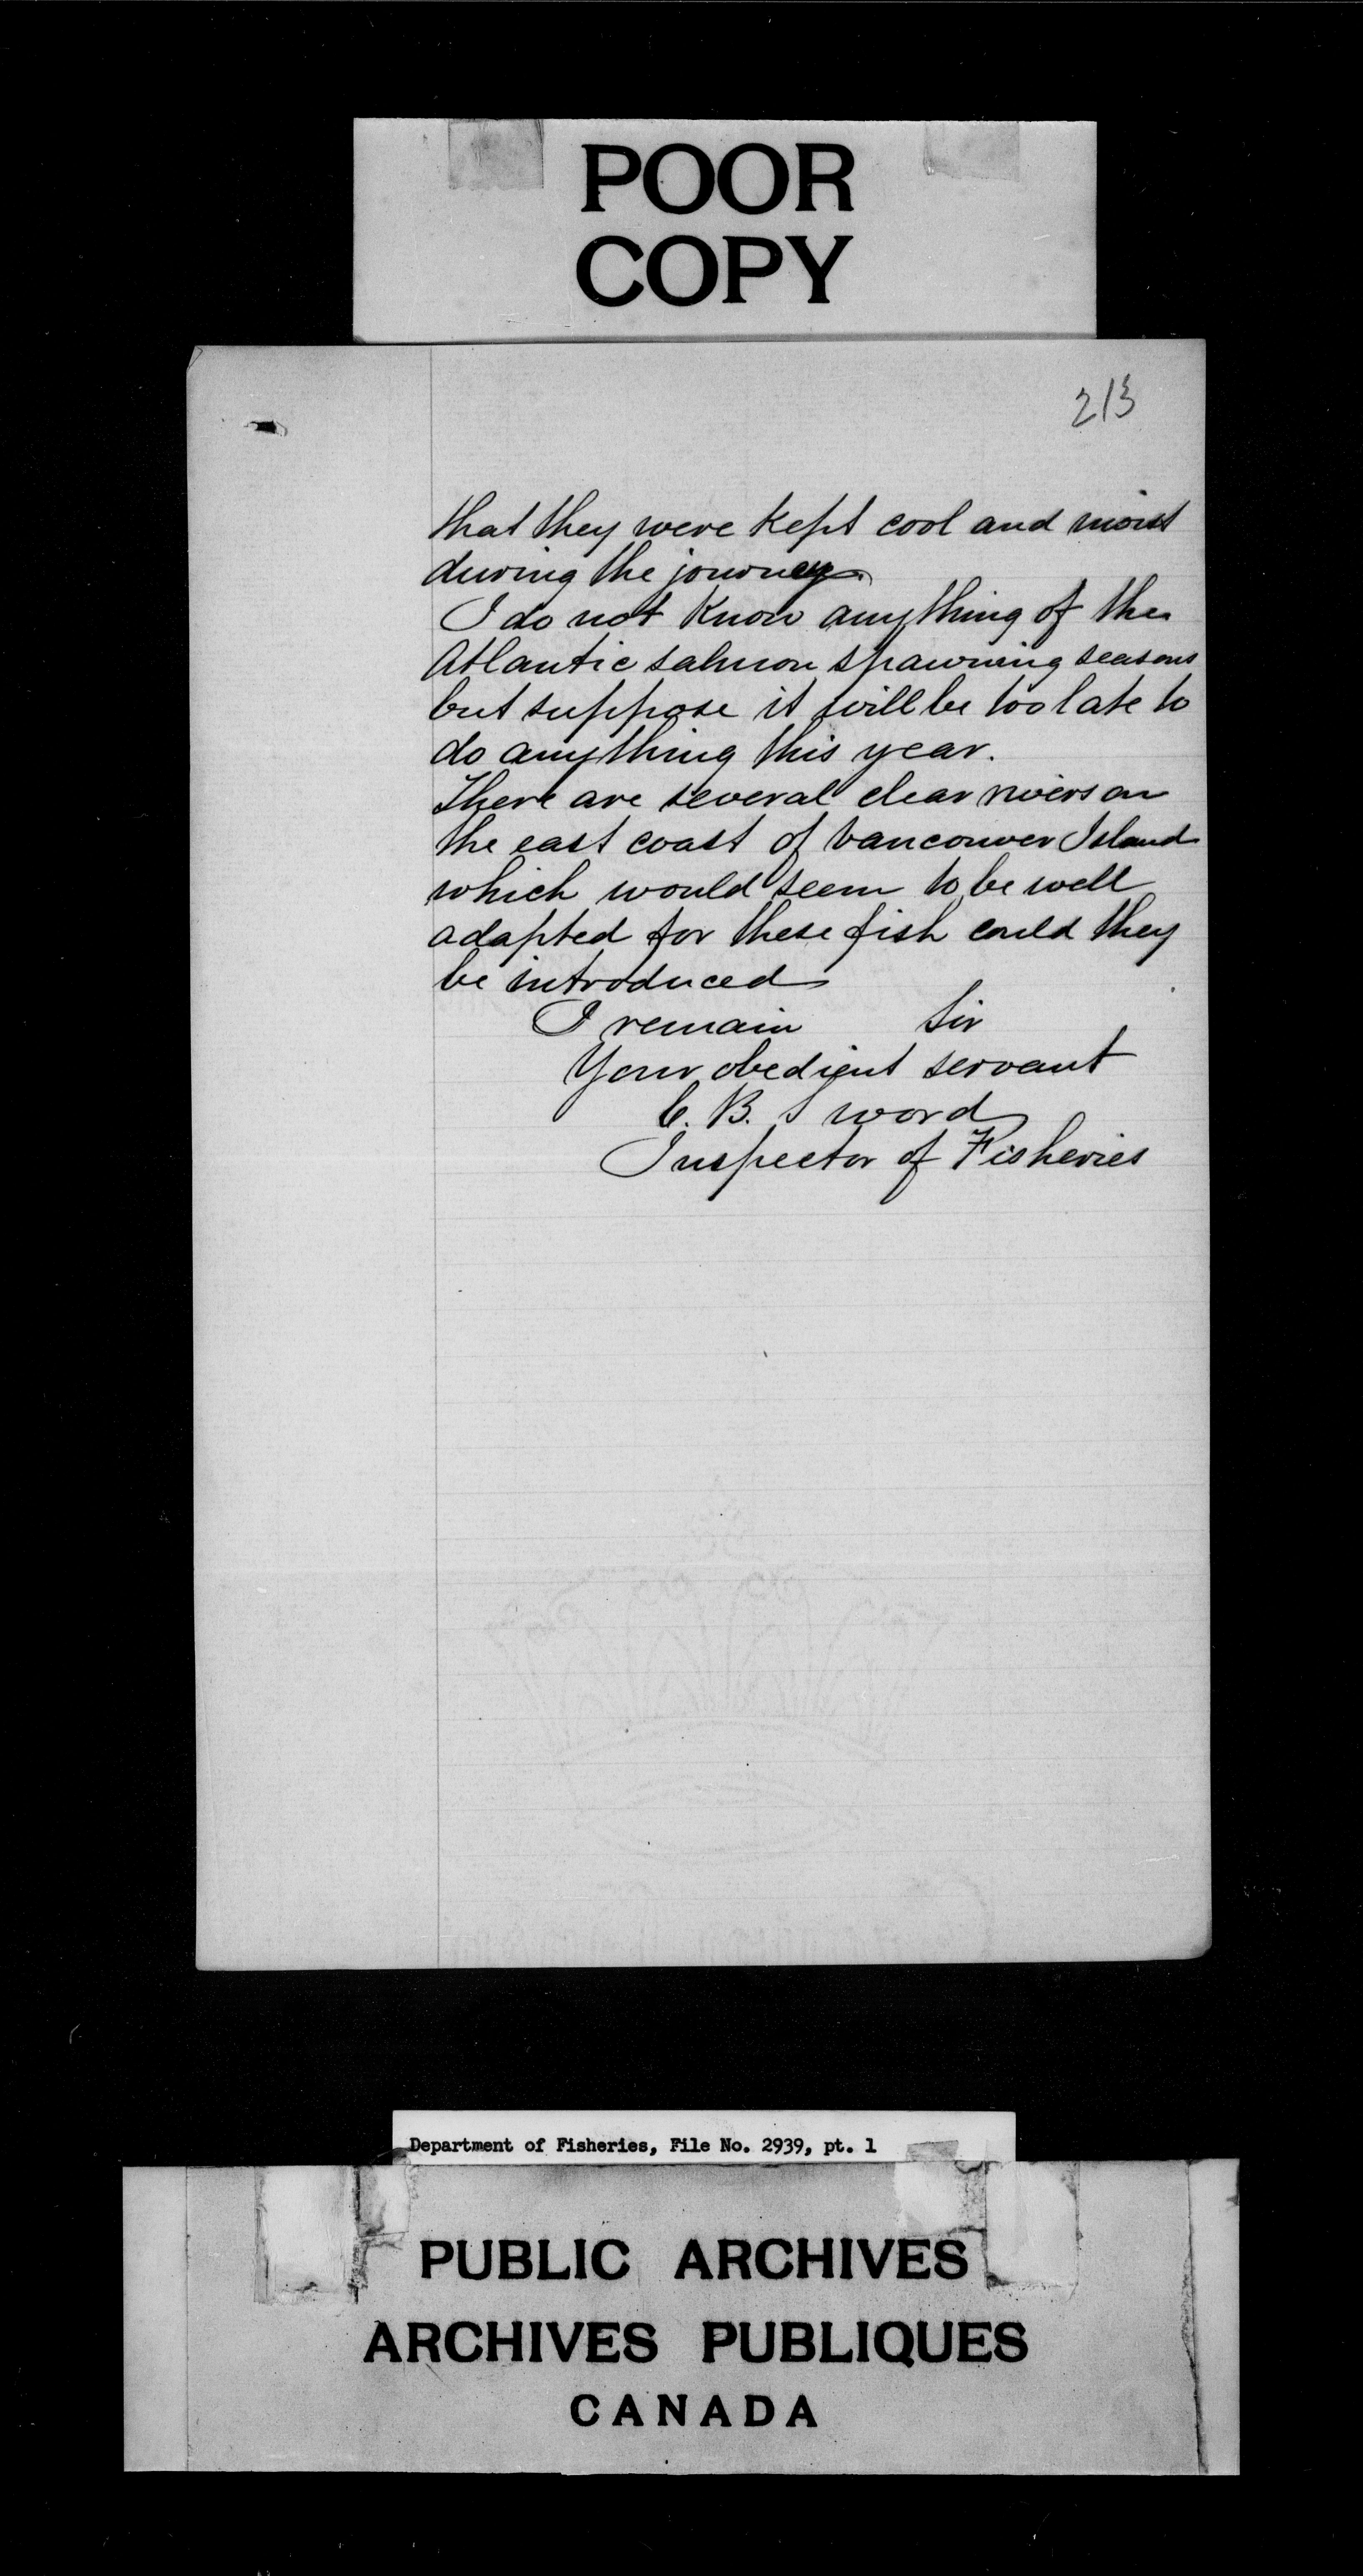 POOR
COPY
213
that they were kept cool and moist
during the journey.
I do not know anything of the
Atlantic salmon spawning seasons
but suppose it will be too late to
do anything this year.
There are several clear rivers on
the east coast of Vancouver Island
which would seem to be well
adapted for these fish could they
be introduced
I remain Sir
Your obedient servant
C. B. Sword
Inspector of Fisheries
Department of Fisheries, File No. 2939, pt. 1
PUBLIC ARCHIVES
ARCHIVES PUBLIQUES
CANADA